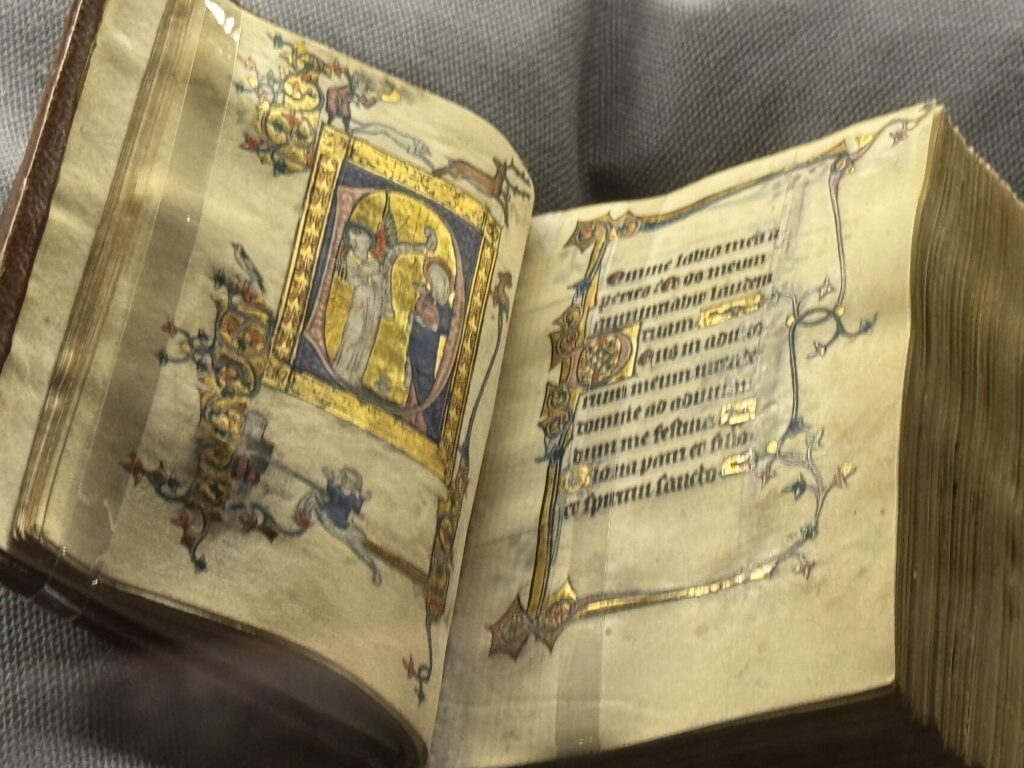 Omine labia mea a
peries. Et os meum
annunciabit laudem
tuam.
Deus in adiuto
rium meum intende.
domine ad adiuuan
dum me festina
Gloria patri et filio
et spiritui sancto